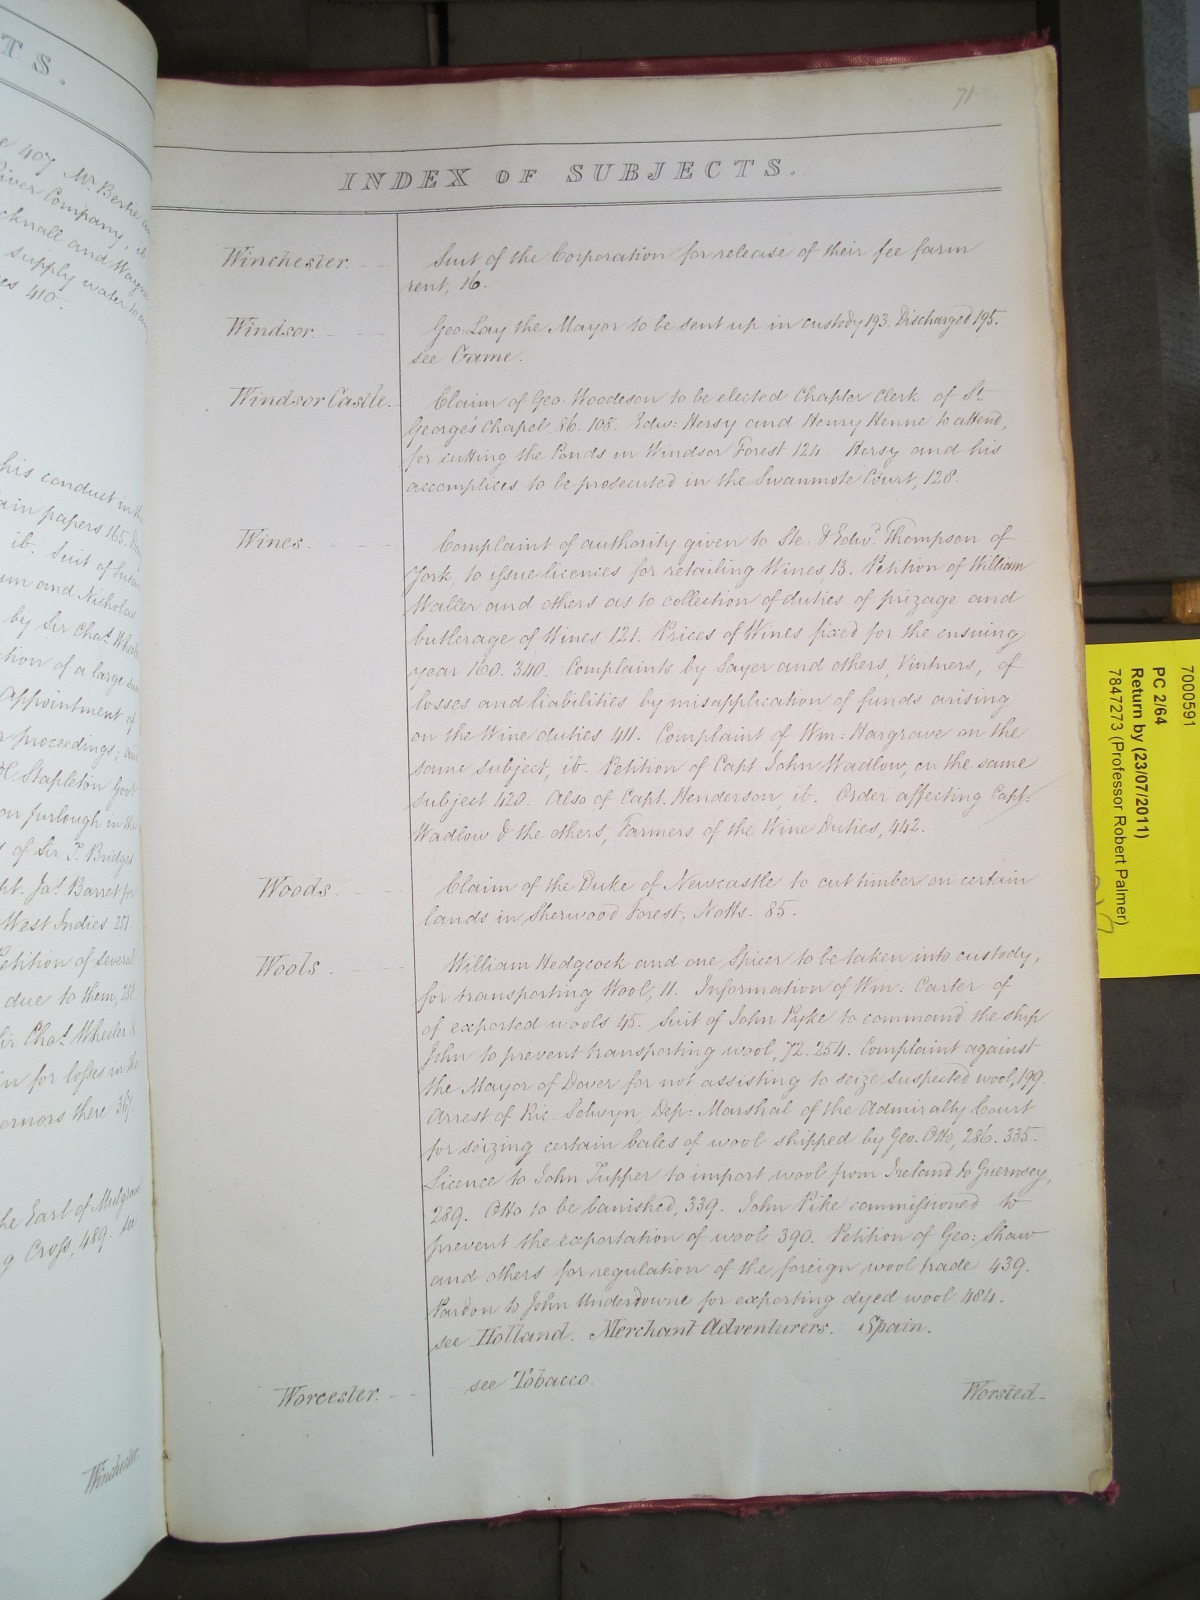 TS.
407. Mr. Bertie
River Company, ib
and
supply water to
410.
his conduct in the
papers 165.
ib. Suit of
and Nicholas
by Sir Chas. Wheeler
tion of a large
appointment of
proceedings;
Stapleton Govr.
on furlough in the
of Sir T. Bridges
Jas. Barret for
West Indies 251.
Petition of several
due to them,
Sir Chas. Wheeler
in for losses in the
ernors there 367.
he Earl of Mulgrave
g Cross, 489.
Winchester.
71
INDEX OF SUBJECTS.
Winchester. Suit of the Corporation for release of their fee farm
rent, 16.
Windsor. Geo: Lay the Mayor to be sent up in custody 193. Discharged 195.
see Game.
Windsor Castle. Claim of Geo. Woodeson to be elected Chapter Clerk of St.
Georges Chapel, 86. 108. Edw: Hersy and Henry Henne to attend,
for cutting the Ponds in Windsor Forest 124. Hersy and his
accomplices to be prosecuted in the Swanmote Court, 128.
Wines. Complaint of authority given to Ste: & Edwd. Thompson of
York, to issue licences for retailing Wines 13. Petition of William
Waller and others as to collection of duties of prizage and
butlerage of Wines 121. Prices of Wines fixed for the ensuing
year 160. 340. Complaints by Sayer and others, Vintners, of
losses and liabilities by misapplication of funds arising
on the Wine duties 411. Complaint of Wm: Hargrave on the
same subject, ib. Petition of Capt. John Wadlow, on the same
subject 420. Also of Capt. Henderson, ib. Order affecting Capt.
Wadlow & the others, Farmers of the Wine Duties, 442.
Woods. Claim of the Duke of Newcastle to cut timber on certain
lands in Sherwood Forest, Notts. 85.
Wools. William Hedgcock and one Spicer to be taken into custody,
for transporting Wool, 11. Information of Wm. Carter of
of exported wools 45. Suit of John Pyke to command the ship
John to prevent transporting wool, 72. 254. Complaint against
the Mayor of Dover for not assisting to seize suspected wool, 199.
Arrest of Ric. Selvyn, Dep: Marshal of the Admiralty Court
for seizing certain bales of wool shipped by Geo. Otto, 286. 335.
Licence to John Tupper to import wool from Ireland to Guernsey,
289. Otto to be banished, 339. John Pike commissioned to
prevent the exportation of wool 390. Petition of Geo: Shaw
and others for regulation of the foreign wool trade 439.
Pardon to John Underdowne for exporting dyed wool 484.
see Holland. Merchant Adventurers. Spain.
Worcester. see Tobacco.
Worsted.
7000591
PC 2/64
Return by (23/07/2011)
7847273 (Professor Robert Palmer)